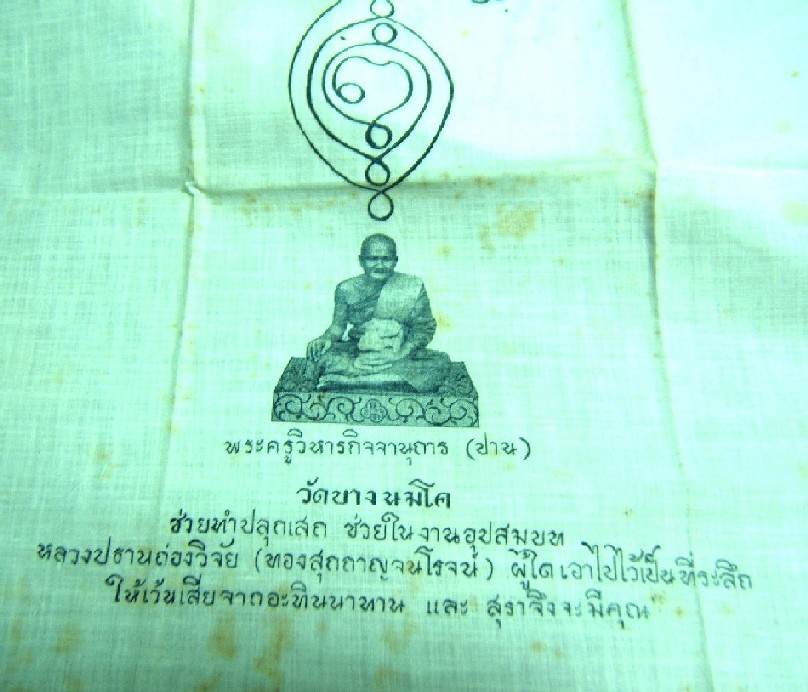 พระครูวิหารกิจจานุการ (ปาน)
วัดบางนมโค
ช่วยทำปลุกเสก ช่วยในงานอุปสมบท
หลวงปราบถ่องวิจัย (ทองสุกกาญจนโรจน์) ผู้ใดเอาไปไว้เป็นที่ระลึก
ให้เว้นเสียจากอะทินนาทาน และ สุราจึงจะมีคุณ